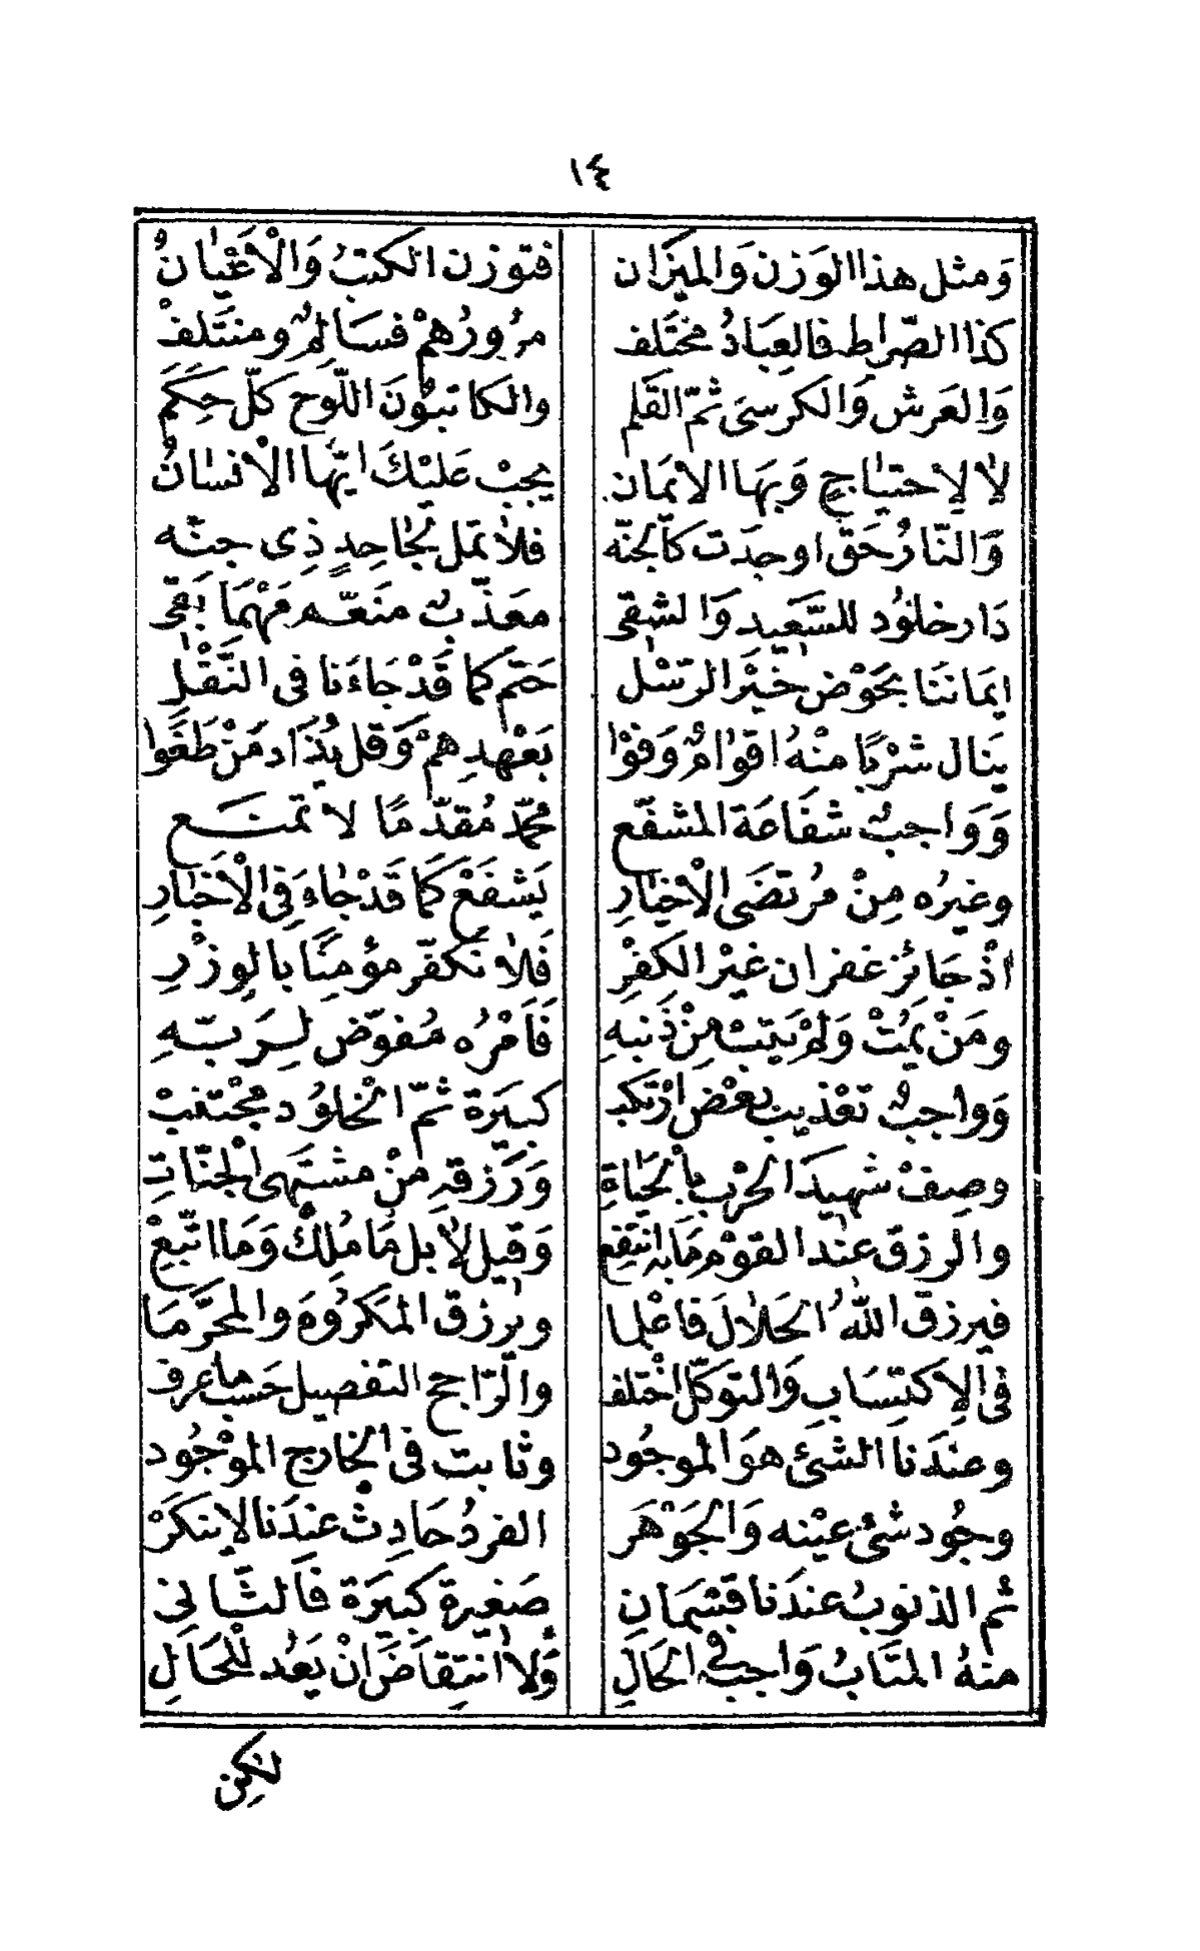 ١٤
وَمثل هذا الوَزن وَالميزَان فتوزن الكتبُ وَالْأَعْيٰانُ
كذا الصّراط فالعِبَادُ مختَلف مرُورُهمْ فسَالِمٌ ومنتَلفْ
وَالعَرش وَالكرسىَ ثمّ القَلم والكاتبُونَ اللّوحَ كلّ حِكَم
لاٰ لِاحتيٰاجٍ وَبهَا الايمَان يجبْ عَليْكَ ايّهٰا الْانسٰانُ
وَالنّارُحَقّ اوجدَت كاَلجنّه فلاٰ تمَل لجٰاحِدٍ ذِى جِنّه
دَارخلوُد للسَّعَيد وَالشقى معَذّبٌ منَعّم مَهْمَا بَقى
ايمَاننَا بحَوْض خيْر الرّسْل حَتم كما قَدْ جَاءَنا فى النَّقْل
يَنال شرْبًا منْهُ اقوٰامٌ وَفوْا بَعْهدِهمْ وَقل يُذَاد مَنْ طَغَوا
وَوَاجبٌ شفَاعَة المشفّع محمّد مُقدّمًا لا تمنَع
وغيرُه مِنْ مرُتضَى الْاَخيٰارِ يَشفَعْ كمَا قَدْ جٰاءَ فِى الْاَخبٰارِ
اذْ جَائز غفران غيْر الكَفْرِ فَلاٰ نكفّر مؤمِنًا بالِوزْرِ
ومَنْ يَمُتْ وَلمْ يَتبْ مِنْ ذَنبِهِ فَاَمْرُه مُفوّض لِرَبّهِ
وَواجبٌ تعْذيب بعْض ارْتكَب كبيَرة ثمّ الْخلوُد مجْتنَبْ
وصِفْ شهيدَ الحرْب بالْحيَاةِ وَرَزقهِ منْ مشتَهى الْجنّاتِ
والرزق عنْد القوْم مَا بهِ انتفِع وَقيل لاٰ بل مَا مُلكْ وَمَا اتّبِعْ
فيرزق اللّٰهُ الحَلاٰلَ فاعْلما ويرزق المكَرُوهَ والمحَرّمَا
فى الاِكتِسَابِ وَالتوكّل اخْتلف والرّاجح التفصيل حَسبَما عرف
وعندَنا الشئ هوَ الموجُود وثابت فى الخارج الموْجُود
وجُود شئ عيْنه وَالجَوْهَر الفردُ حَادِثٌ عندَنا لاينكَرْ
ثم الذنوبُ عندَنا قسْمَانِ صَغيرة كبيَرة فَالثّانى
منهُ المتَابُ وَاجبٌ فى الحَالِ وَلاٰ انتِقاضَ انْ يَعُد للْحَالِ
لكِن